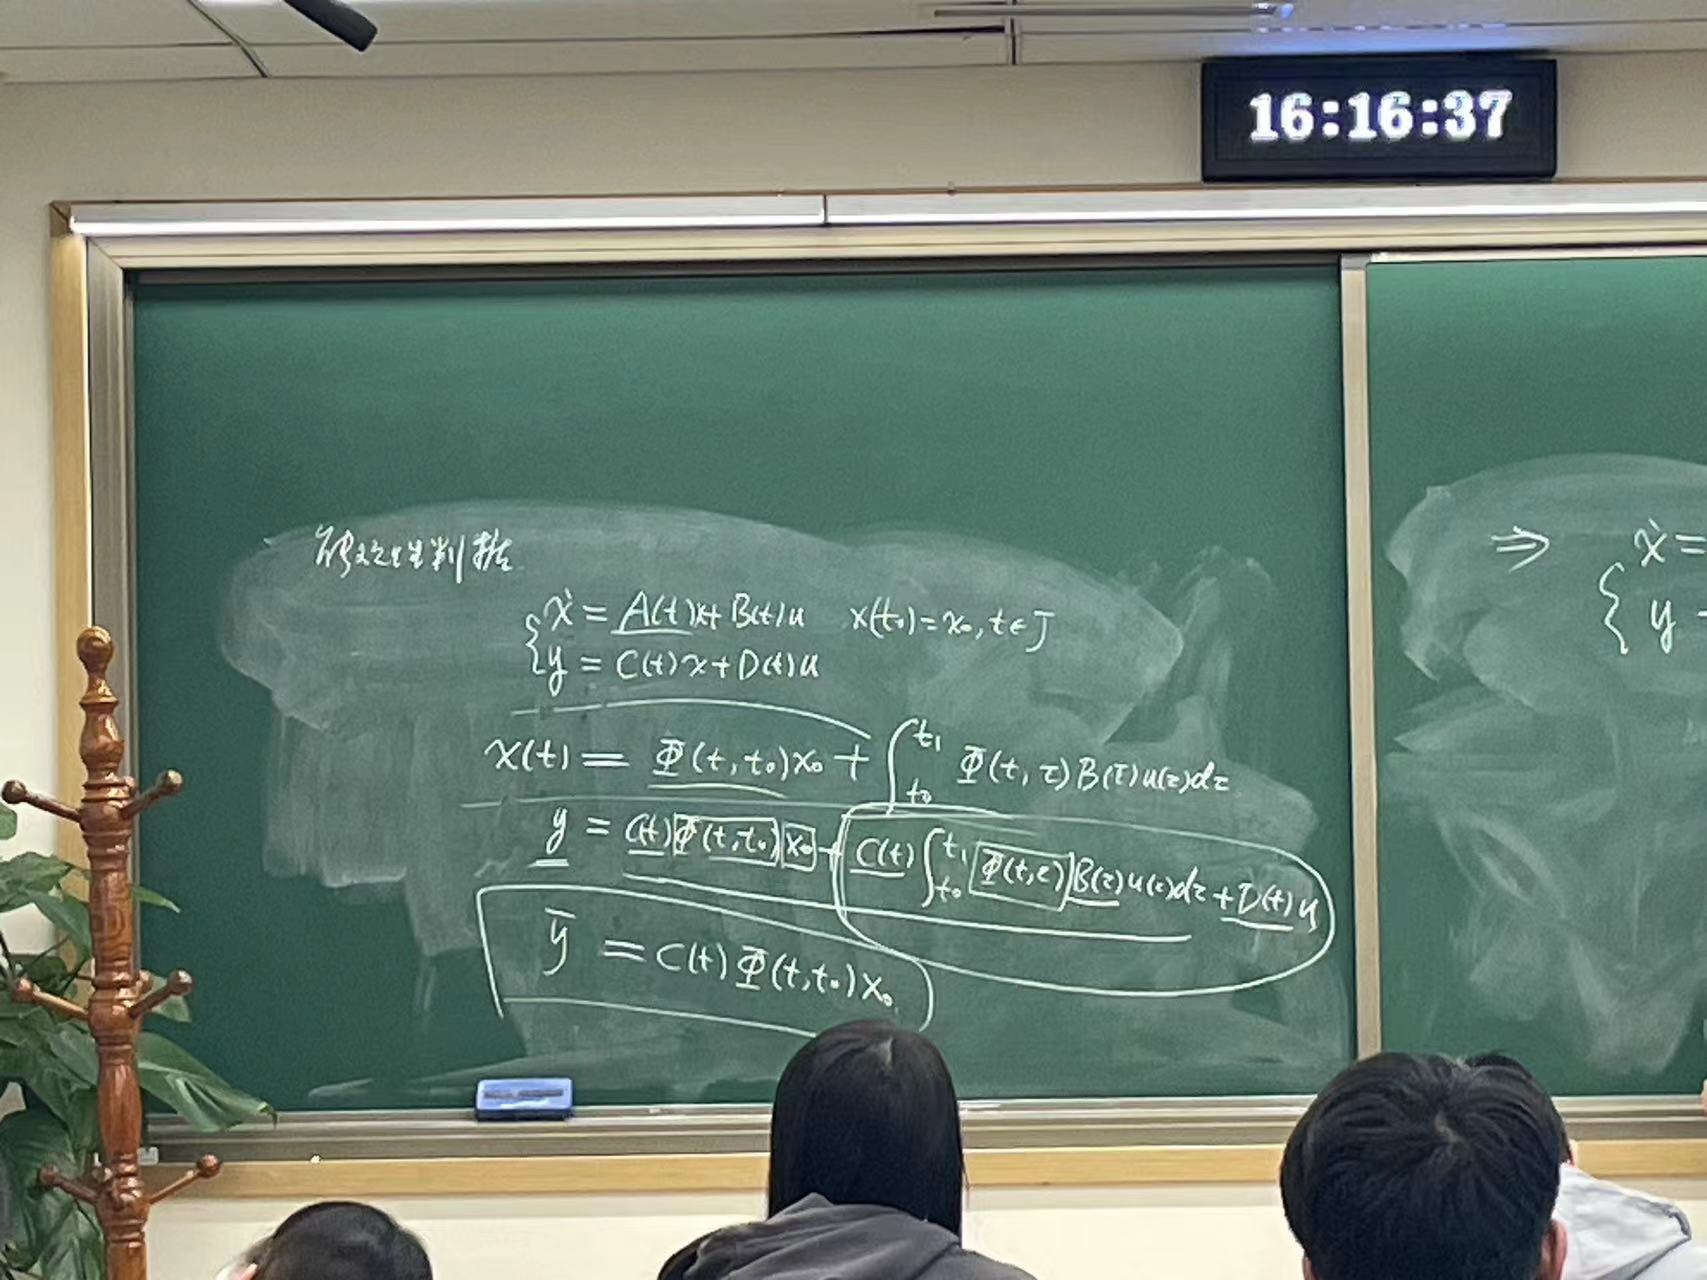 16:16:37
能控性判据
ẋ = A(t)x + B(t)u x(t₀) = x₀, t ∈ J
y = C(t)x + D(t)u
x(t) = Φ(t, t₀)x₀ + ∫_{t₀}^{t₁} Φ(t, τ)B(τ)u(τ)dτ
y = C(t)Φ(t, t₀)x₀ + C(t)∫_{t₀}^{t₁} Φ(t, τ)B(τ)u(τ)dτ + D(t)u
ȳ = C(t)Φ(t, t₀)x₀
⇒ ẋ =
y =